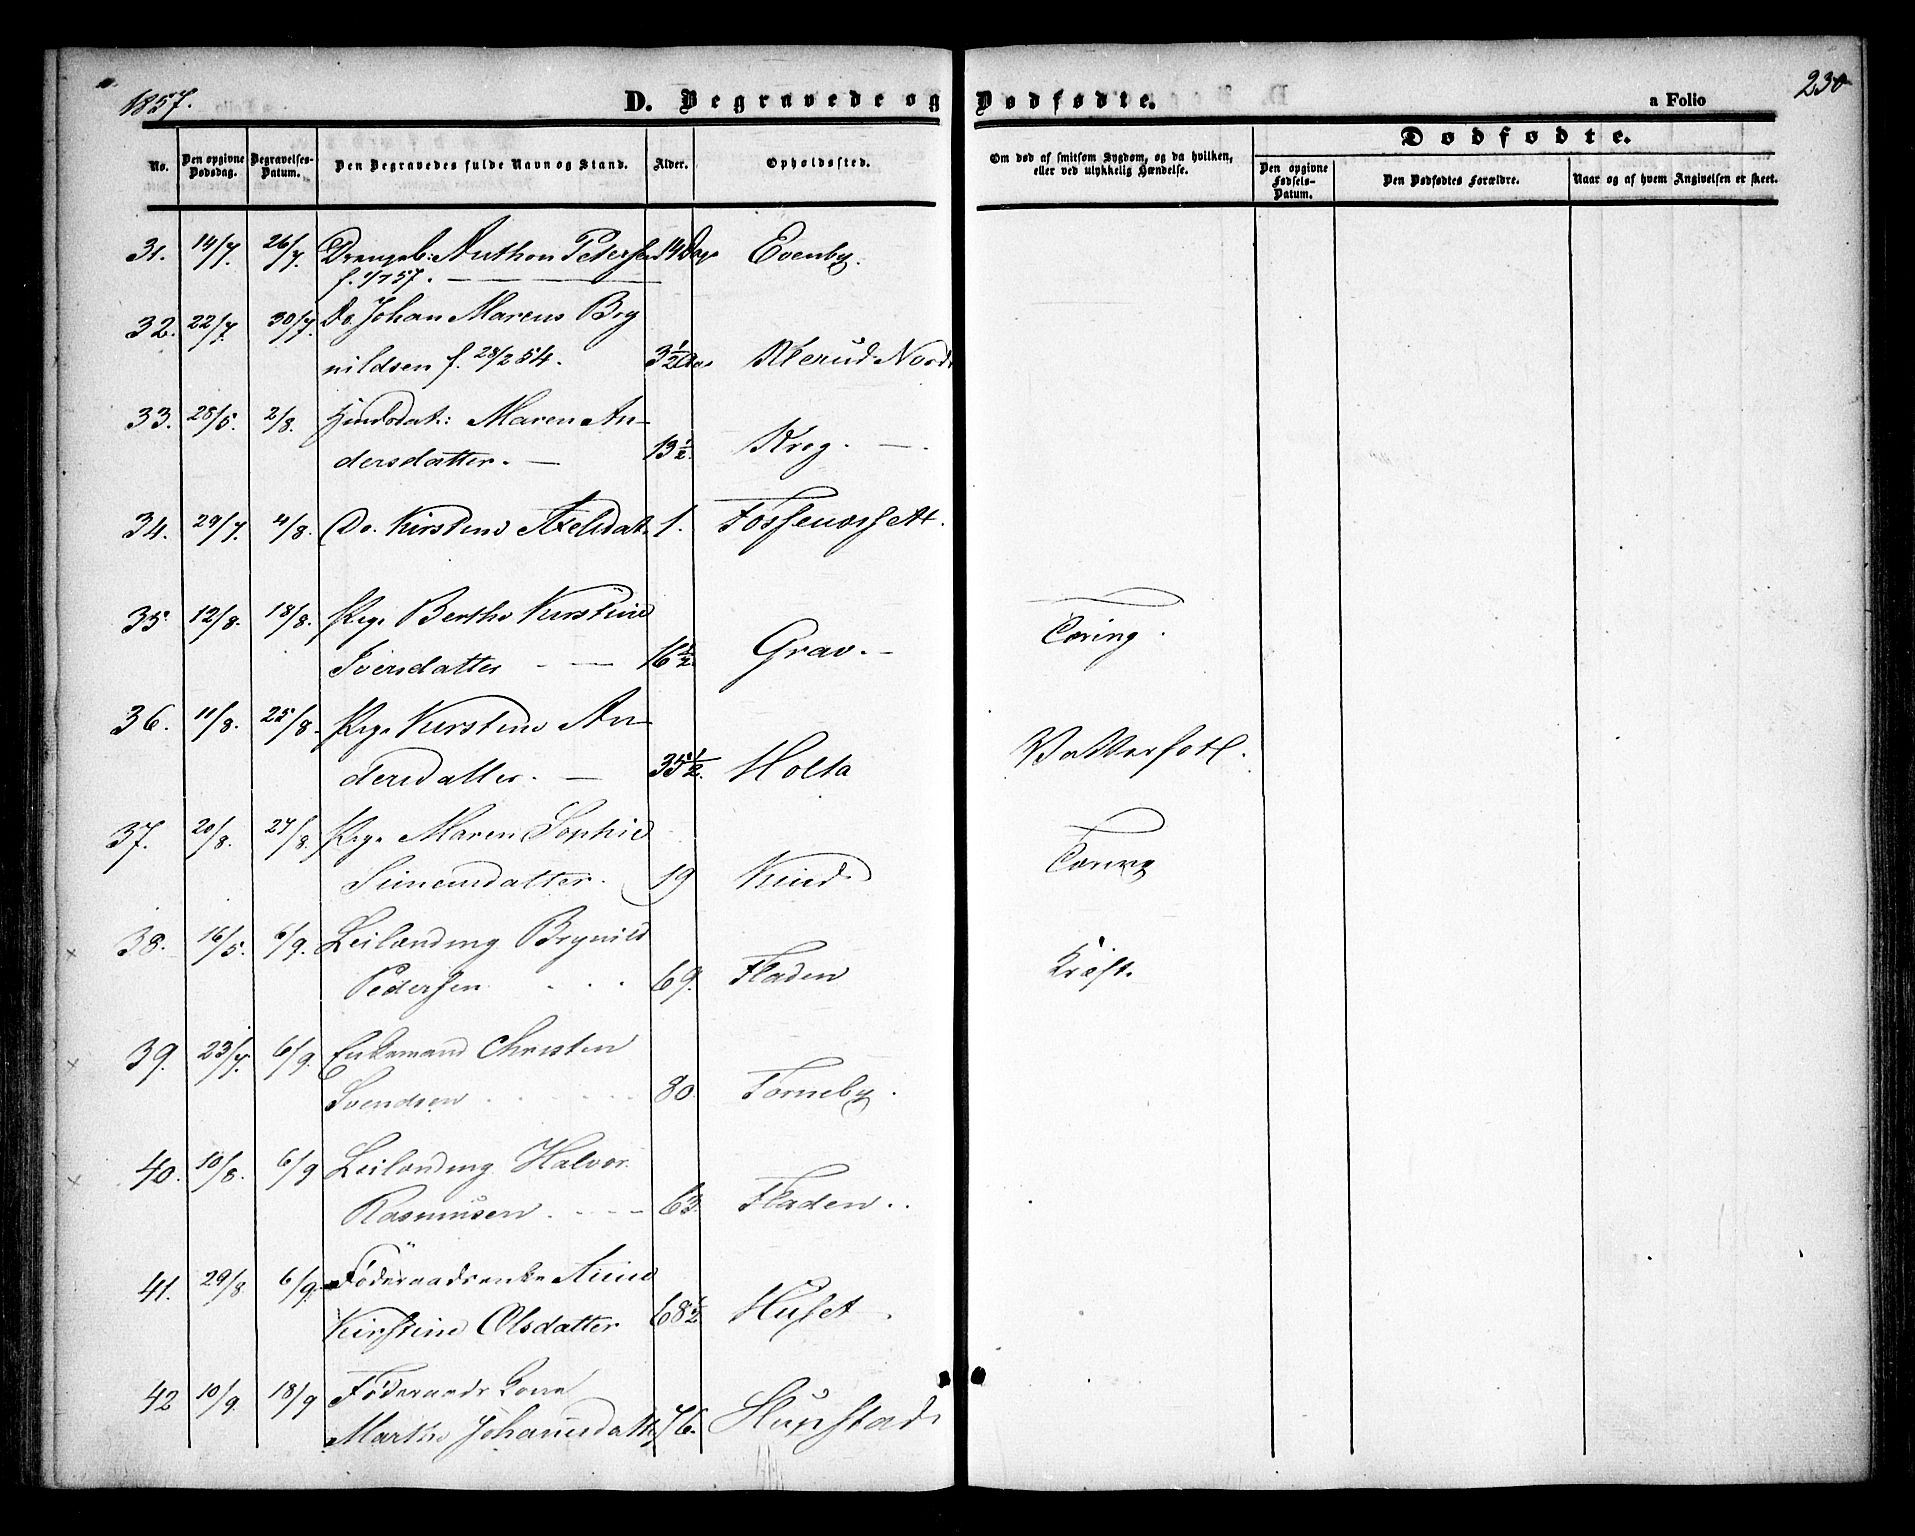 1857.
D. Begravede og Dødfødte.
a Folio
230
No.
Den opgivne Dødsdag.
Begravelses-Datum.
Den Begravedes fulde Navn og Stand.
Alder.
Opholdssted.
Om død af smitsom Sygdom, og da hvilken, eller ved ulykkelig Hændelse.
Dødfødte.
Den opgivne Fødsels-Datum.
Den Dødfødtes Forældre.
Naar og af hvem Angivelsen er skeet.
31. 14/7. 26/7. Drengeb: Anthon Petersen 14 Dage Evenby.
f. 1/7 57.
32. 22/7. 30/7. Do. Johan Marcus Bry
nildsen f. 28/2 54. 3 1/2 Nord
33. 28/5. 2/8. Maren An-
dersdatter. 13 1/2. Krog.
34. 29/7. 4/8. Do. Kirstine Axelsdat. 1.
35. 12/8. 18/8. Pige Berthe Kirstine
Iversdatter 16 1/2. Grav. Tæring.
36. 11/8. 25/8. Pige Kirstine An-
dersdatter. 35 1/2. Holta
37. 20/8. 27/8. Pige Maren Sophie
Simensdatter. 19 Tæring
38. 16/5. 6/9. Leilænding Brynild
Pedersen 69. Fladen Kræft.
39. 23/7. 6/9. Enkemand Christen
Svendsen 80. Torneby.
40. 10/8. 6/9 Leilænding Halvor
Rasmusen. 63. Fladen.
41. 29/8 6/9. Föderaadsenke Anne
Kirstine Olsdatter 68 1/2. Huset
42 10/9. 18/9 Föderaads Kone
Marthe Johannesdatt. 76.